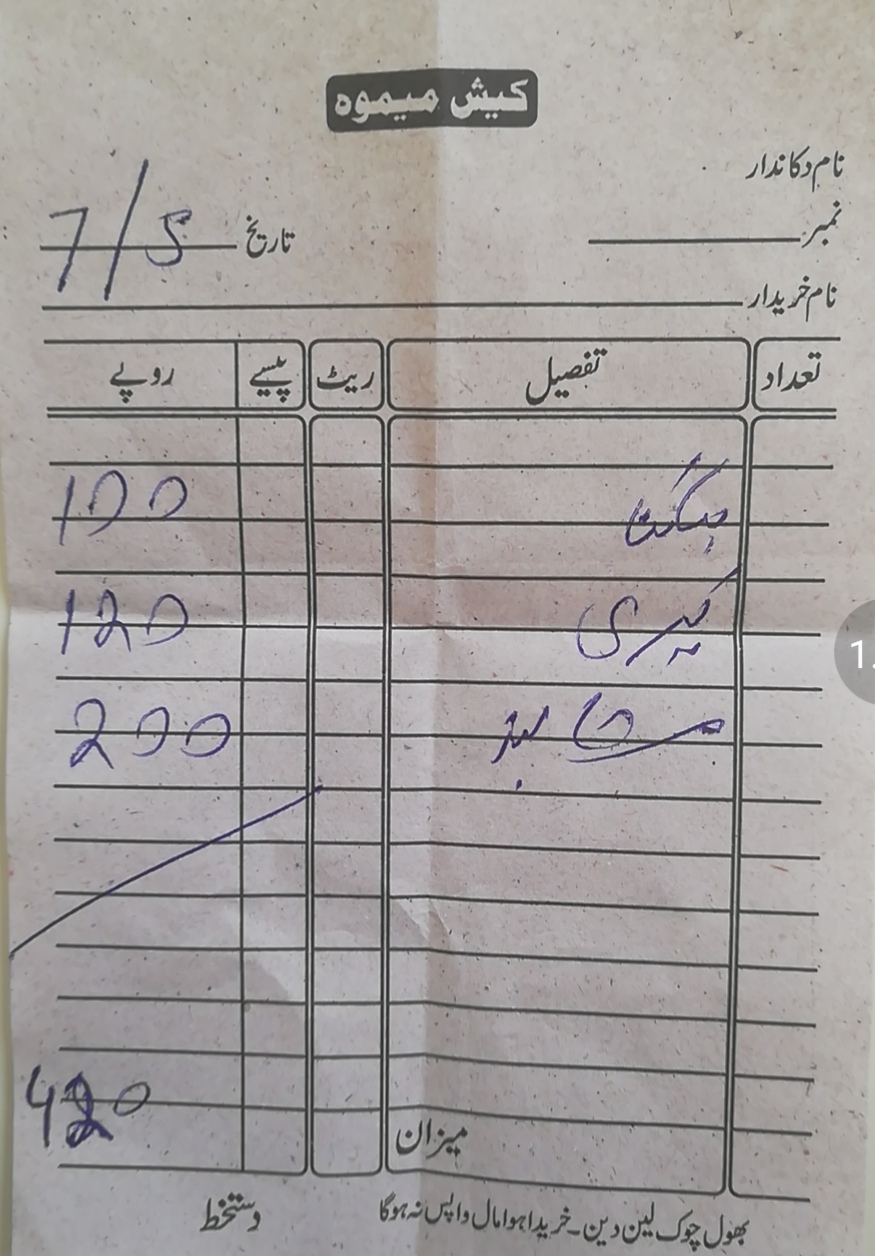 کیش میموہ
نام دکاندار
نمبر
تاریخ 7/5
نام خریدار
تعداد تفصیل ریٹ پیسے روپے
بسکٹ 100
120
200
میزان 420
بھول چوک لین دین۔ خریدا ہوا مال واپس نہ ہوگا
دستخط